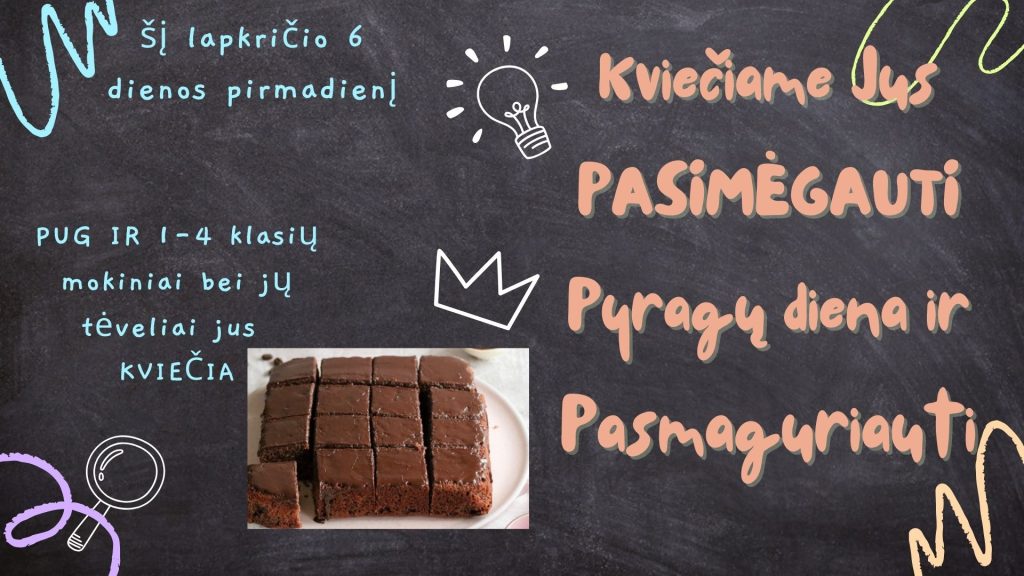 Šį lapkričio 6
dienos pirmadienį
PUG IR 1-4 klasių
mokiniai bei jų
tėveliai jus
KVIEČIA
Kviečiame Jus
PASIMĖGAUTI
Pyragų diena ir
Pasmaguriauti